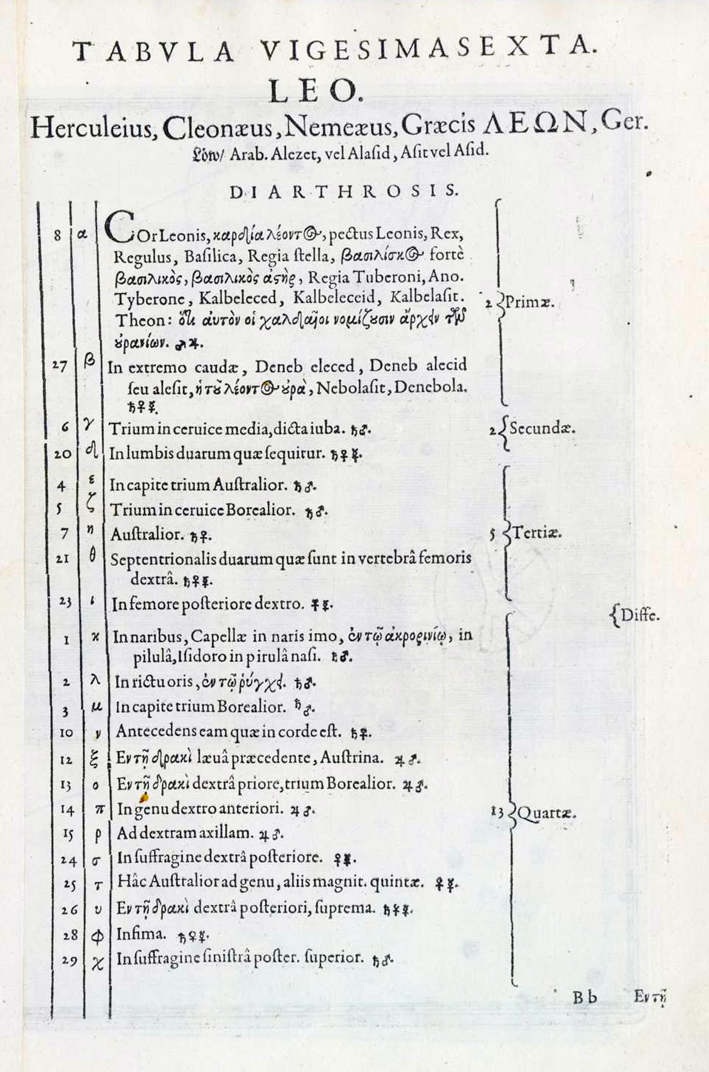 TABVLA VIGESIMASEXTA.
LEO.
Herculeius, Cleonæus, Nemeæus, Græcis ΛΕΩΝ, Ger.
Löw/ Arab. Alezet, vel Alasid, Asit vel Asid.
DIARTHROSIS.
8 α COr Leonis, καρδία λέοντος, pectus Leonis, Rex,
Regulus, Basilica, Regia stella, βασιλίσκος fortè
βασιλικὸς, βασιλικὸς ἀςὴρ, Regia Tuberoni, Ano.
Tyberone, Kalbeleced, Kalbeleceid, Kalbelasit. 2 { Primæ.
Theon: ὃν αυτὸν οἱ χαλδαῖοι νομίζουσιν ἄρχειν τῶν
ουρανίων. ♂♃.
27 β In extremo caudæ, Deneb eleced, Deneb alecid
seu alesit, ἡ τοῦ λέοντος ουρὰ, Nebolasit, Denebola.
♄♀☿.
6 γ Trium in ceruice media, dicta iuba. ♄♂. 2 { Secundæ.
20 δ In lumbis duarum quæ sequitur. ♄♀☿.
4 ε In capite trium Australior. ♄♂.
5 ζ Trium in ceruice Borealior. ♄♂.
7 η Australior. ♄♀. 5 { Tertiæ.
21 θ Septentrionalis duarum quæ sunt in vertebrâ femoris
dextrâ. ♄♀☿.
23 ι In femore posteriore dextro. ♀☿.
{ Diffe.
1 κ In naribus, Capellæ in naris imo, ἐν τῷ ἀκρορινίῳ, in
pilulâ, Isidoro in pirulâ nasi. ♄♂.
2 λ In rictu oris, ἐν τῷ ῥύγχει. ♄♂.
3 μ In capite trium Borealior. ♄♂.
10 ν Antecedens eam quæ in corde est. ♄♀.
12 ξ Εν τῇ δρακὶ læuâ præcedente, Austrina. ♃♂.
13 ο Εν τῇ δρακὶ dextrâ priore, trium Borealior. ♃♂.
14 π In genu dextro anteriori. ♃♂. 13 { Quartæ.
15 ρ Ad dextram axillam. ♃♂.
24 σ In suffragine dextrâ posteriore. ♀☿.
25 τ Hâc Australior ad genu, aliis magnit. quintæ. ♀☿.
26 υ Εν τῇ δρακὶ dextrâ posteriori, suprema. ♄♀☿.
28 φ Infima. ♄♀☿.
29 χ In suffragine sinistrâ poster. superior. ♄♂.
Bb Εν τῇ